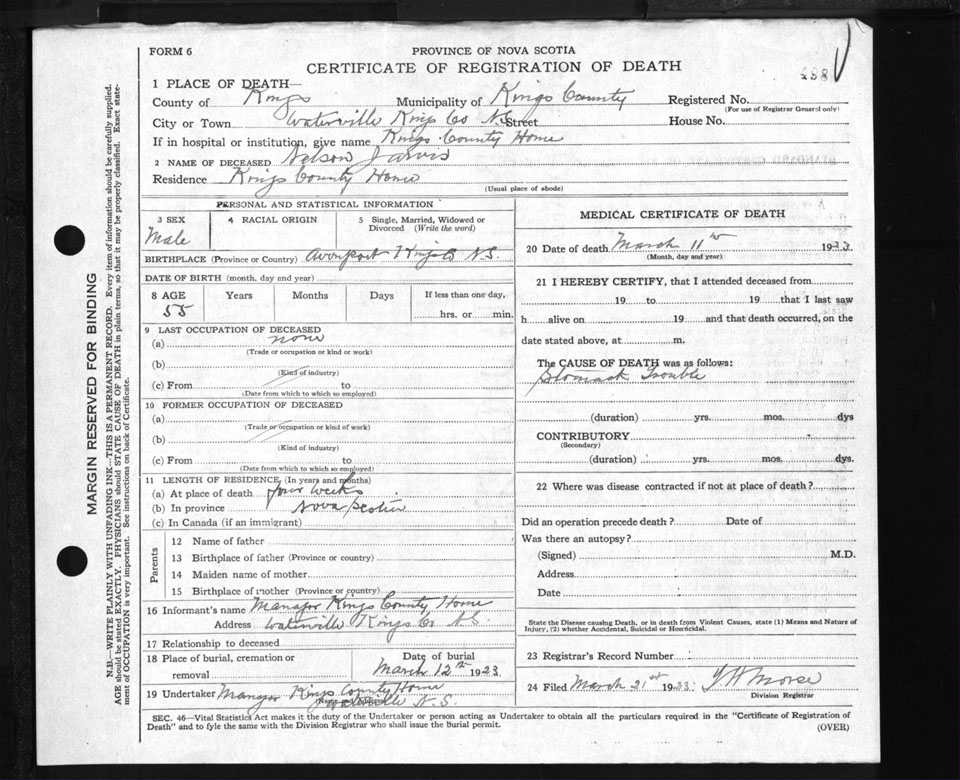 FORM 6
PROVINCE OF NOVA SCOTIA
CERTIFICATE OF REGISTRATION OF DEATH
288
1 PLACE OF DEATH—
County of Kings Municipality of Kings County Registered No.
(For use of Registrar General only)
City or Town Waterville Kings Co N.S. Street House No.
If in hospital or institution, give name Kings County Home
2 NAME OF DECEASED Nelson Jarvis
Residence Kings County Home
(Usual place of abode)
MARGIN RESERVED FOR BINDING
N.B.—WRITE PLAINLY WITH UNFADING INK—THIS IS A PERMANENT RECORD. Every item of information should be carefully supplied.
AGE should be stated EXACTLY. PHYSICIANS should STATE CAUSE OF DEATH in plain terms, so that it may be properly classified. Exact state-
ment of OCCUPATION is very important. See instructions on back of Certificate.
PERSONAL AND STATISTICAL INFORMATION
3 SEX 4 RACIAL ORIGIN 5 Single, Married, Widowed or
Divorced (Write the word)
Male
BIRTHPLACE (Province or Country) Avonport Kings Co N.S.
DATE OF BIRTH (month, day and year)
8 AGE Years Months Days If less than one day,
55 hrs. or min.
9 LAST OCCUPATION OF DECEASED
(a) none
(Trade or occupation or kind or work)
(b)
(Kind of industry)
(c) From to
(Date from which to which so employed)
10 FORMER OCCUPATION OF DECEASED
(a)
(Trade or occupation or kind of work)
(b)
(Kind of industry)
(c) From to
(Date from which to which so employed)
11 LENGTH OF RESIDENCE (In years and months)
(a) At place of death four weeks
(b) In province Nova Scotia
(c) In Canada (if an immigrant)
Parents
12 Name of father
13 Birthplace of father (Province or country)
14 Maiden name of mother
15 Birthplace of mother (Province or country)
16 Informant's name Manager Kings County Home
Address Waterville Kings Co N.S.
17 Relationship to deceased
18 Place of burial, cremation or Date of burial
removal March 12th 1923
19 Undertaker Manager Kings County Home
Waterville N.S.
MEDICAL CERTIFICATE OF DEATH
20 Date of death March 11 1923
(Month, day and year)
21 I HEREBY CERTIFY, that I attended deceased from
19 to 19 that I last saw
h alive on 19 and that death occurred, on the
date stated above, at m.
The CAUSE OF DEATH was as follows:
Stomack Trouble
(duration) yrs. mos. dys
CONTRIBUTORY
(Secondary)
(duration) yrs. mos. dys.
22 Where was disease contracted if not at place of death?
Did an operation precede death? Date of
Was there an autopsy?
(Signed) M.D.
Address
Date
State the Disease causing Death, or in death from Violent Causes, state (1) Means and Nature of
Injury, (2) whether Accidental, Suicidal or Homicidal.
23 Registrar's Record Number
24 Filed March 21st 1923
Division Registrar
SEC. 46—Vital Statistics Act makes it the duty of the Undertaker or person acting as Undertaker to obtain all the particulars required in the "Certificate of Registration of
Death" and to fyle the same with the Division Registrar who shall issue the Burial permit.
(OVER)